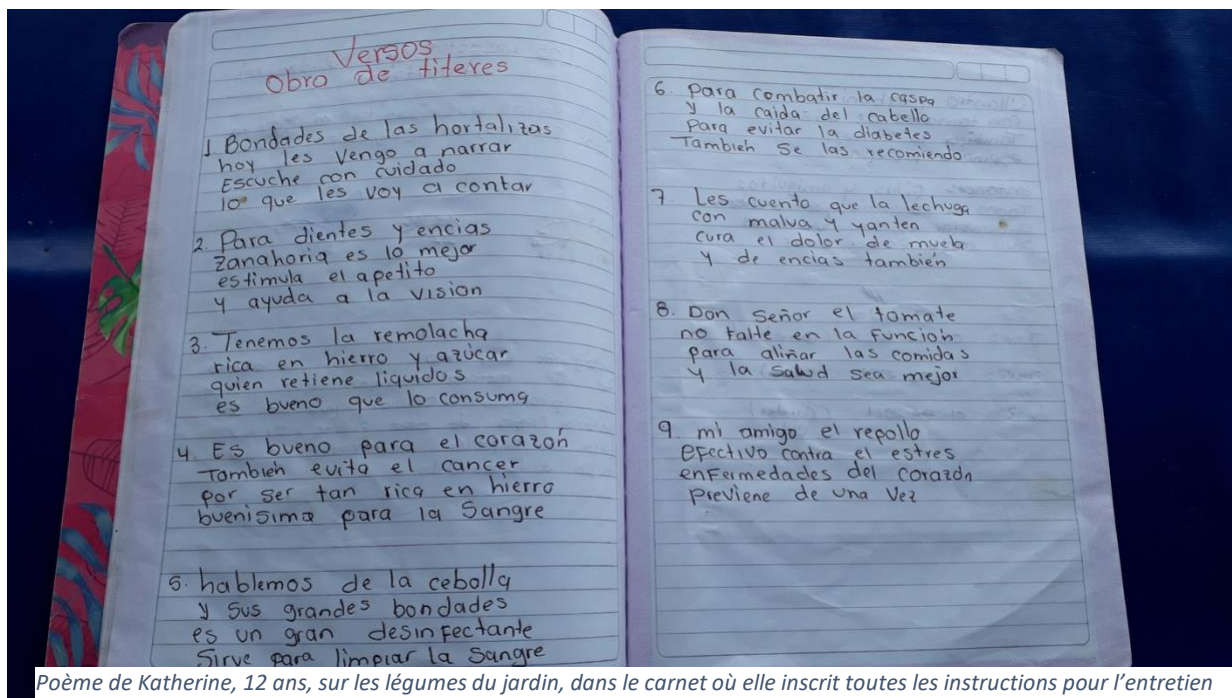 Versos
Obra de titeres
1 Bondades de las hortalizas
hoy les vengo a narrar
Escuche con cuidado
lo que les voy a contar
2. Para dientes y encias
zanahoria es lo mejor
estimula el apetito
y ayuda a la vision
3. Tenemos la remolacha
rica en hierro y azúcar
quien retiene liquidos
es bueno que lo consuma
4. Es bueno para el corazón
Tambien evita el cancer
por ser tan rica en hierro
buenisima para la sangre
5. hablemos de la cebolla
y sus grandes bondades
es un gran desinfectante
Sirve para limpiar la sangre
6. para combatir la caspa
y la caida del cabello
para evitar la diabetes
Tambien se las recomiendo
7. Les cuento que la lechuga
con malva y yanten
cura el dolor de muela
y de encias también
8. Don Señor el tomate
no falte en la función
para aliñar las comidas
y la salud sea mejor
9. mi amigo el repollo
efectivo contra el estres
enfermedades del corazón
previene de una vez
Poème de Katherine, 12 ans, sur les légumes du jardin, dans le carnet où elle inscrit toutes les instructions pour l'entretien